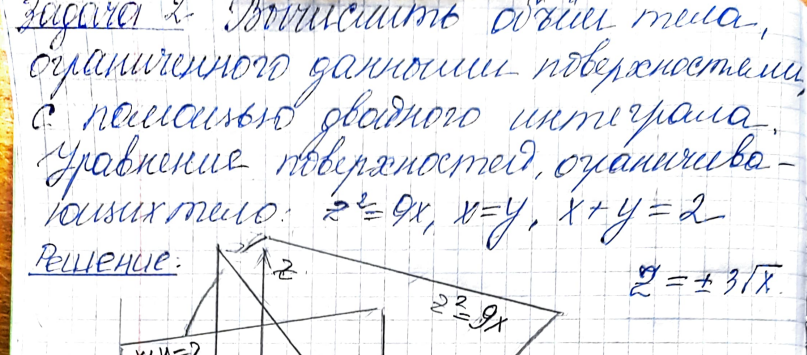 Задача 2. Вычислить объём тела,
ограниченного данными поверхностями,
с помощью двойного интеграла.
Уравнение поверхностей, ограничива-
ющих тело: z²=9x, x=y, x+y=2
Решение:
z = ± 3√x.
z
z²=9x
x+y=2